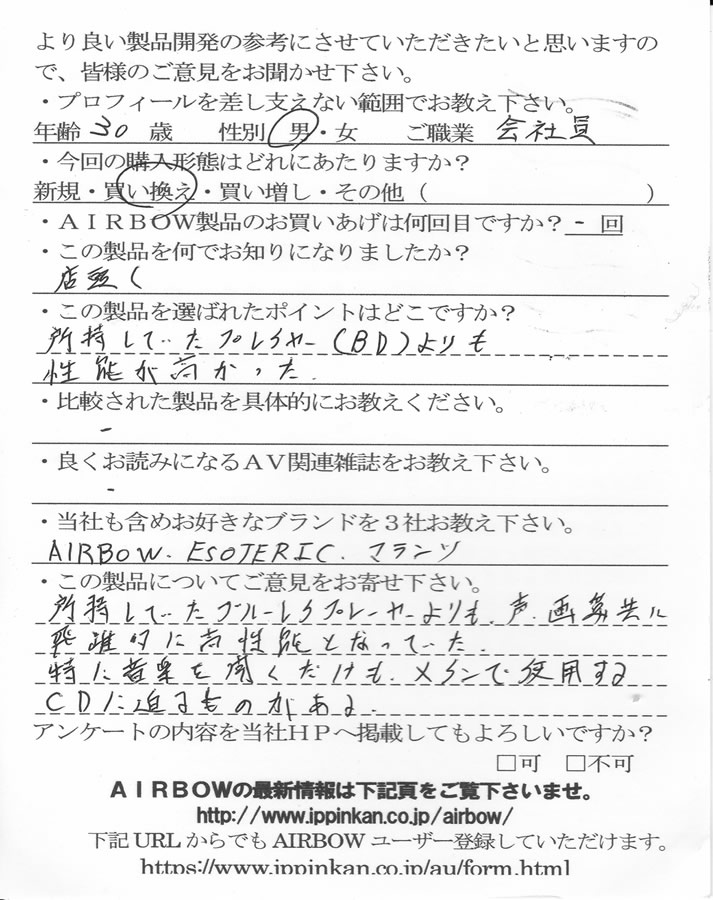 より良い製品開発の参考にさせていただきたいと思いますの
で、皆様のご意見をお聞かせ下さい。
・プロフィールを差し支えない範囲でお教え下さい。
年齢 30 歳　性別 男・女　ご職業 会社員
・今回の購入形態はどれにあたりますか？
新規・買い換え・買い増し・その他（　　　　　）
・ＡＩＲＢＯＷ製品のお買いあげは何回目ですか？ 一 回
・この製品を何でお知りになりましたか？
店頭
・この製品を選ばれたポイントはどこですか？
所持していたプレイヤー(BD)よりも
性能が高かった.
・比較された製品を具体的にお教えください。
-
・良くお読みになるＡＶ関連雑誌をお教え下さい。
-
・当社も含めお好きなブランドを３社お教え下さい。
AIRBOW. ESOTERIC. マランツ
・この製品についてご意見をお寄せ下さい。
所持していたブルーレイプレーヤーよりも、声、画質共に
飛躍的に高性能となっていた.
特に音楽を聞くだけも、メインで使用する
CDに迫るものがある.
アンケートの内容を当社ＨＰへ掲載してもよろしいですか？
□可　□不可
ＡＩＲＢＯＷの最新情報は下記頁をご覧下さいませ。
http://www.ippinkan.co.jp/airbow/
下記 URL からでも AIRBOW ユーザー登録していただけます。
https://www.ippinkan.co.jp/au/form.html